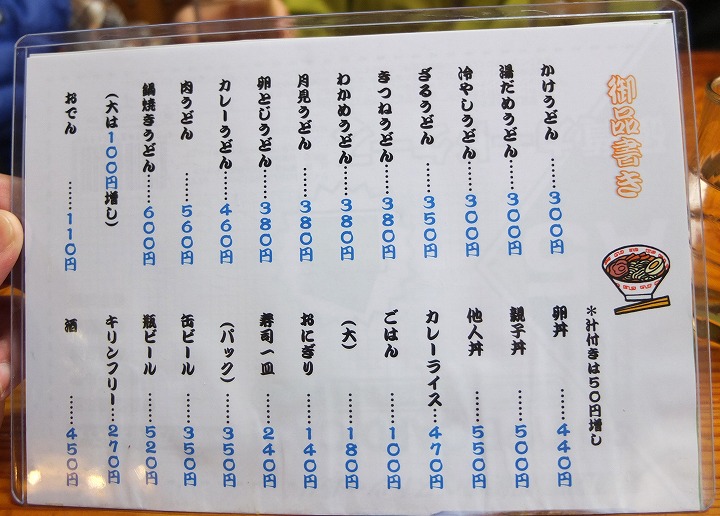 御品書き
かけうどん……300円
湯だめうどん……300円
冷やしうどん……300円
ざるうどん……350円
きつねうどん……380円
わかめうどん……380円
月見うどん……380円
卵とじうどん……380円
カレーうどん……460円
肉うどん……560円
鍋焼きうどん……600円
（大は100円増し）
おでん……110円
＊汁付きは50円増し
卵丼……440円
親子丼……500円
他人丼……550円
カレーライス……470円
ごはん……100円
（大）……180円
おにぎり……140円
寿司一皿……240円
（パック）……350円
缶ビール……350円
瓶ビール……520円
キリンフリー……270円
酒……450円